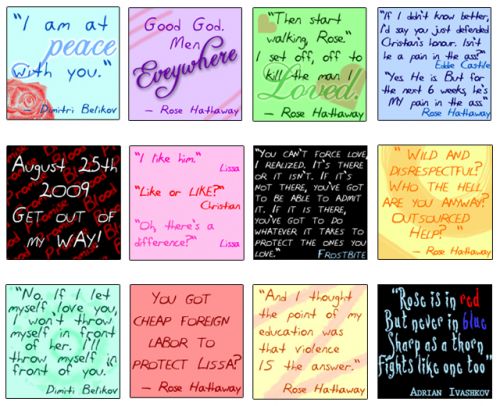 "I am at
peace
with you."
- Dimitri Belikov
Good God.
Men
Eveywhere
- Rose Hathaway
"Then start
walking, Rose."
I set off, off to
kill the man I
Loved.
- Rose Hathaway
"If I didn't know better,
I'd say you just defended
Christian's honour. Isn't
he a pain in the ass"
Eddie Castile
"Yes He is. But for
the next 6 weeks, he's
MY pain in the ass"
Rose Hathaway
August 25th
2009
Get out of
my WAY!
"I like him."
Lissa
"Like or LIKE?"
Christian
"Oh, there's a
difference?"
Lissa
"You can't force love,
I realized. It's there
or it isn't. If it's
not there, you've got
to be able to admit
it. If it is there,
you've got to do
whatever it takes to
protect the ones you
love."
Frostbite
"Wild and
disrespectful?
Who the hell
are you anyway?
Outsourced
Help?"
- Rose Hathaway
"No. If I let
myself love you,
I won't throw
myself in front
of her. I'll
throw myself in
front of you."
Dimiti Belikov
You got
cheap foreign
labor to
protect Lissa?
- Rose Hathaway
"And I thought
the point of my
education was
that violence
IS the answer."
- Rose Hathaway
"Rose is in red
But never in blue
Sharp as a thorn
Fights like one too"
Adrian Ivashkov